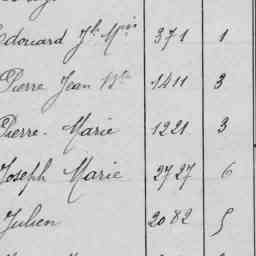 Edouard Jh Mie 371 1
Pierre Jean Bte 1411 3
Pierre-Marie 1221 3
Joseph Marie 2727 6
Julien 2082 5